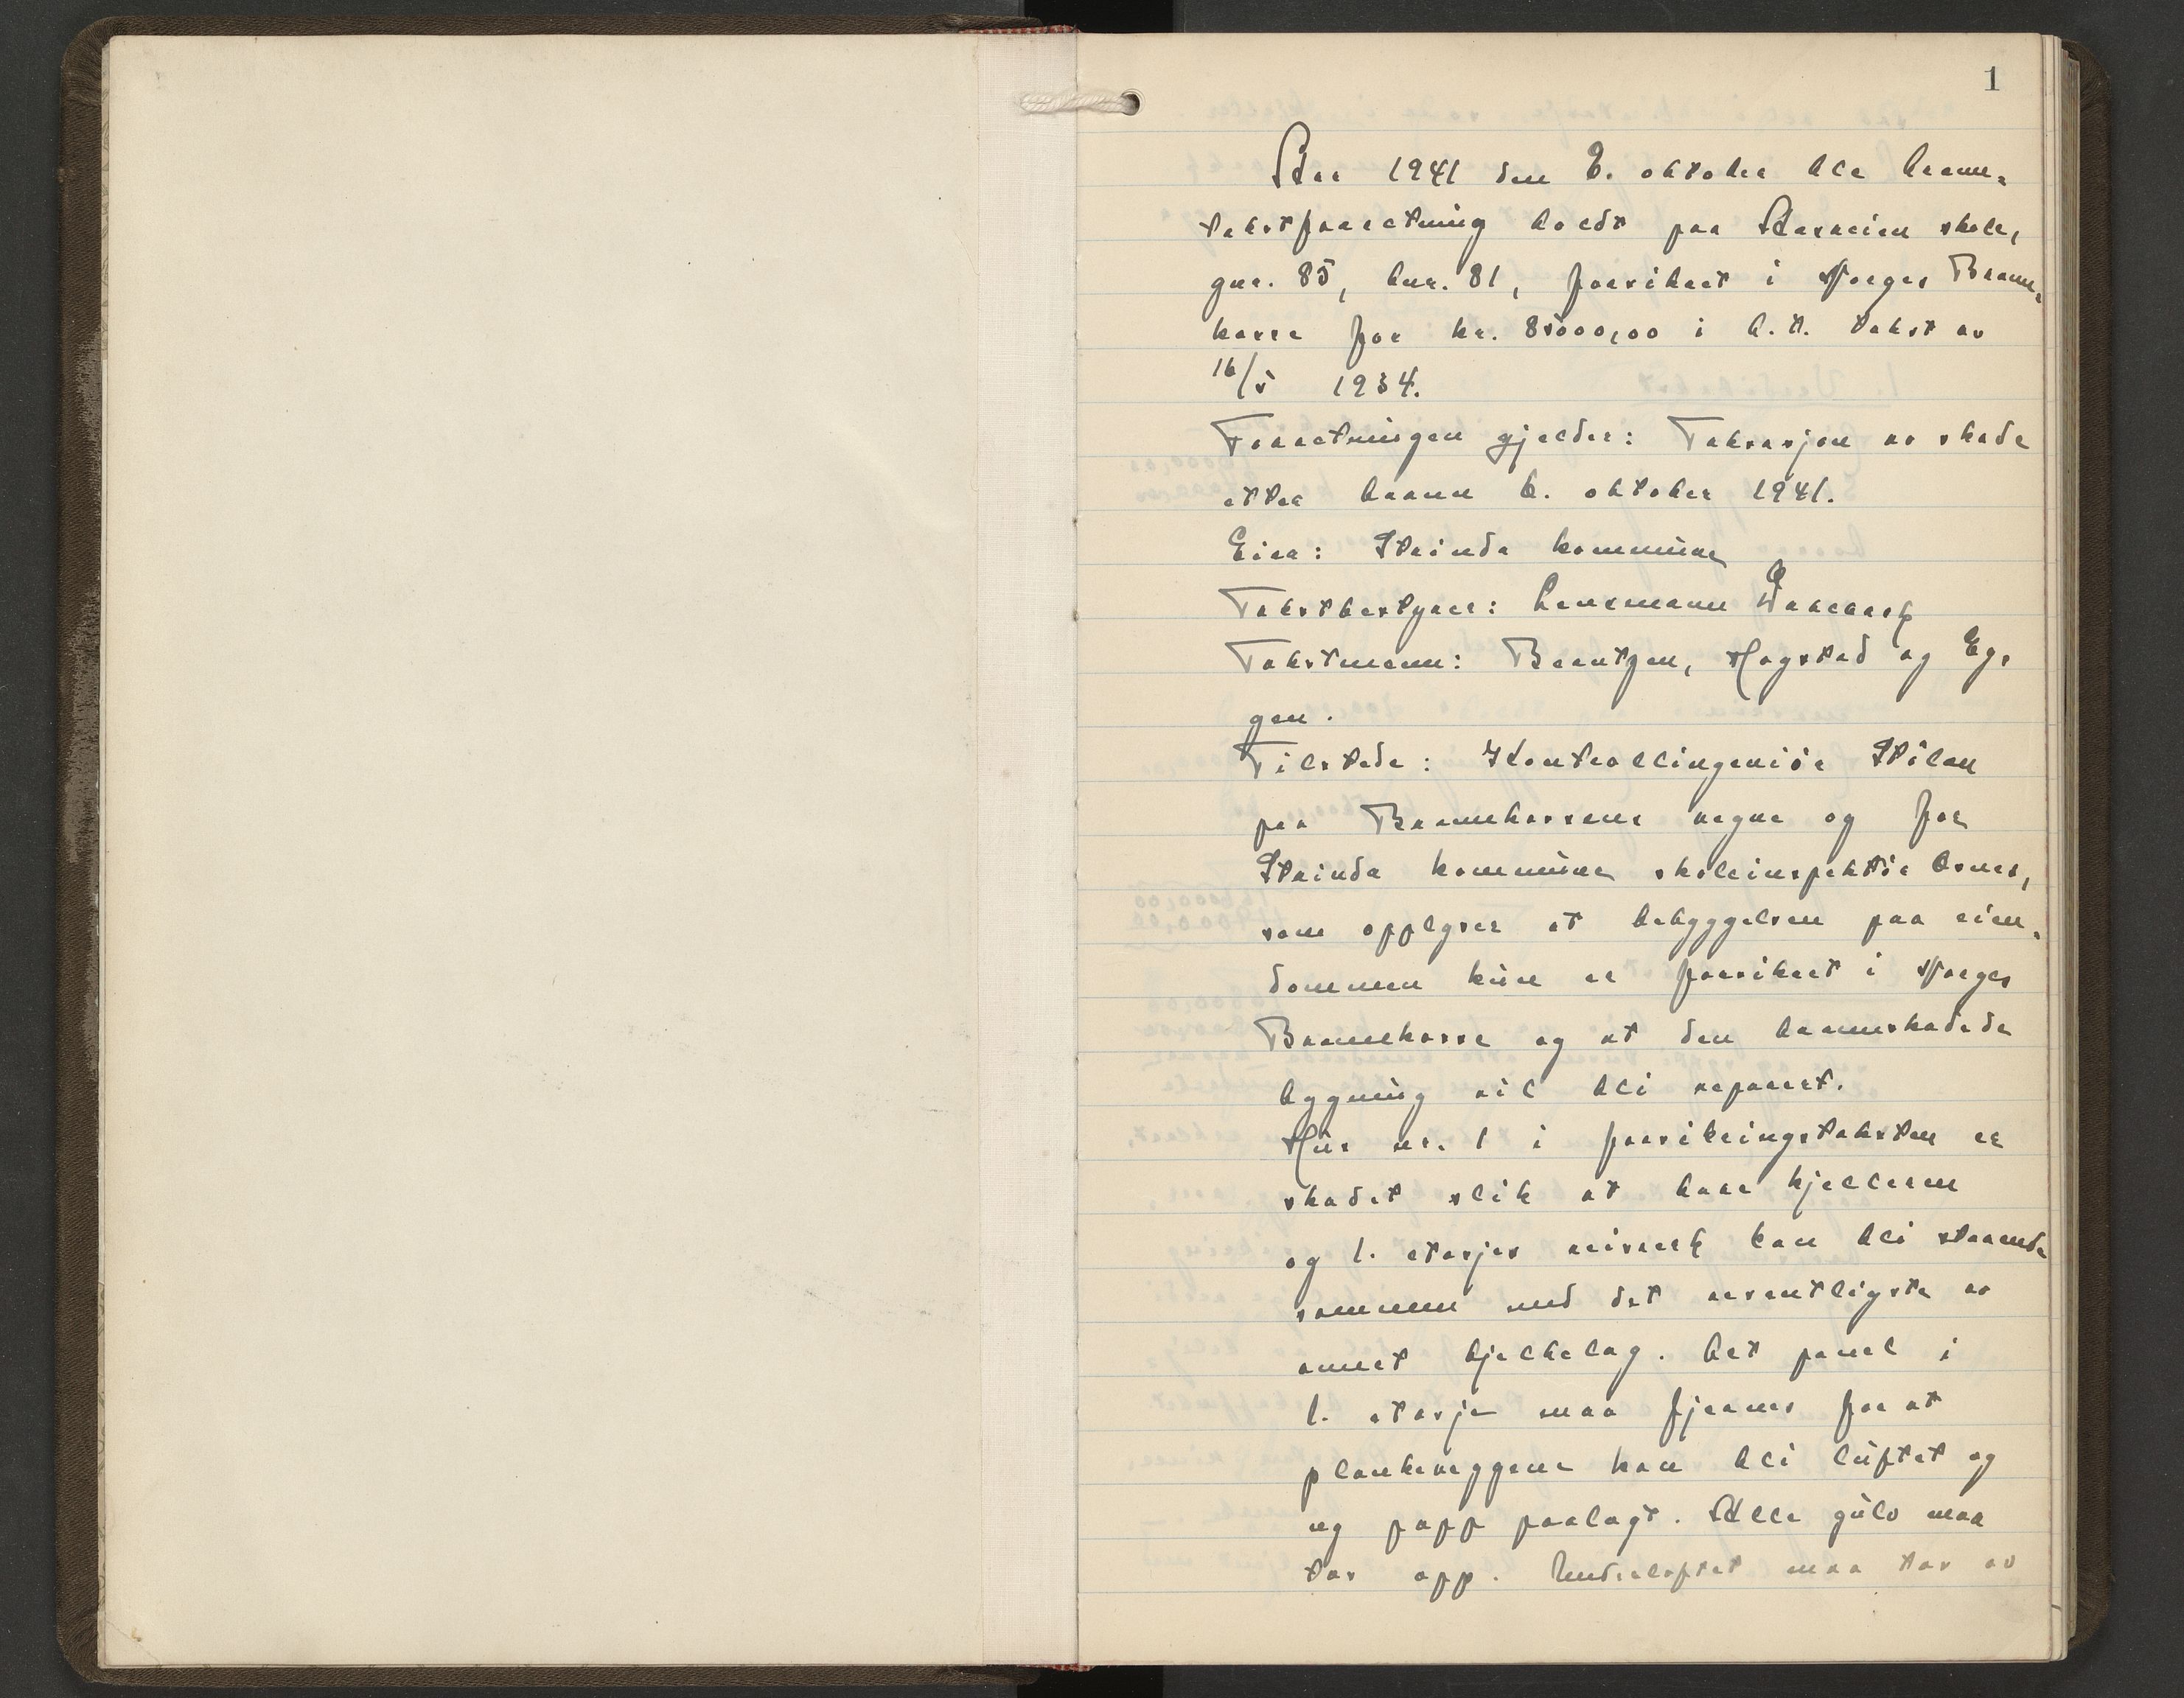 1
Aar 1941 den 8. oktober ble brann-
takstforretning holdt paa Aasveien skole,
gnr. 85, bnr. 81, forsikret i Norges Brann-
kasse for kr. 85000,00 i h.t. takst av
16/5 1934.
Forretningen gjelder: Taksasjon av skade
etter brann 6. oktober 1941.
Eier: Strinda kommune
Takstbestyrer: Lensmann
Takstmenn: Berntzen, Hogstad og Eg-
gen.
Tilstede: Kontrollingeniør Stölan
paa Brannkassens vegne og for
Strinda kommune skoleinspektör
som opplyser at bebyggelsen paa eien-
dommen kun er forsikret i Norges
Brannkasse og at den brannskadede
bygning vil bli reparert.
Hus nr. 1 i forsikringstaksten er
skadet slik at bare kjelleren
og 1. etasjes reisverk kan bli staaende
sammen med det vesentligste av
annet bjelkelag. Det panel i
1. etasje maa fjernes for at
plankeveggene kan bli luftet og
ny papp paalagt. Alle gulv maa
tas opp. Underloftet maa tas av